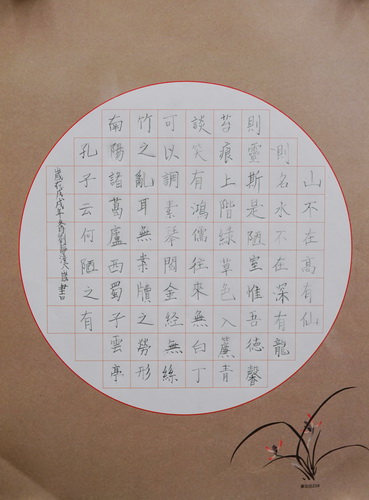 山不在高有仙
則名水不在深有龍
則靈斯是陋室惟吾德馨
苔痕上階綠草色入簾青
談笑有鴻儒往來無白丁
可以調素琴閱金經無絲
竹之亂耳無案牘之勞形
南陽諸葛廬西蜀子雲亭
孔子云何陋之有
歲於戊戌年 書